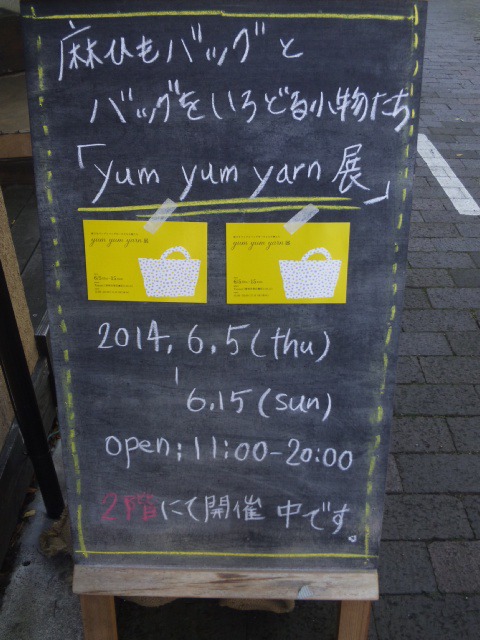 麻ひもバッグと
バッグをいろどる小物たち
「yum yum yarn 展」
yum yum yarn 展
yum yum yarn 展
2014. 6.5 (thu)
|
6.15 (sun)
open; 11:00-20:00
2階にて開催中です。